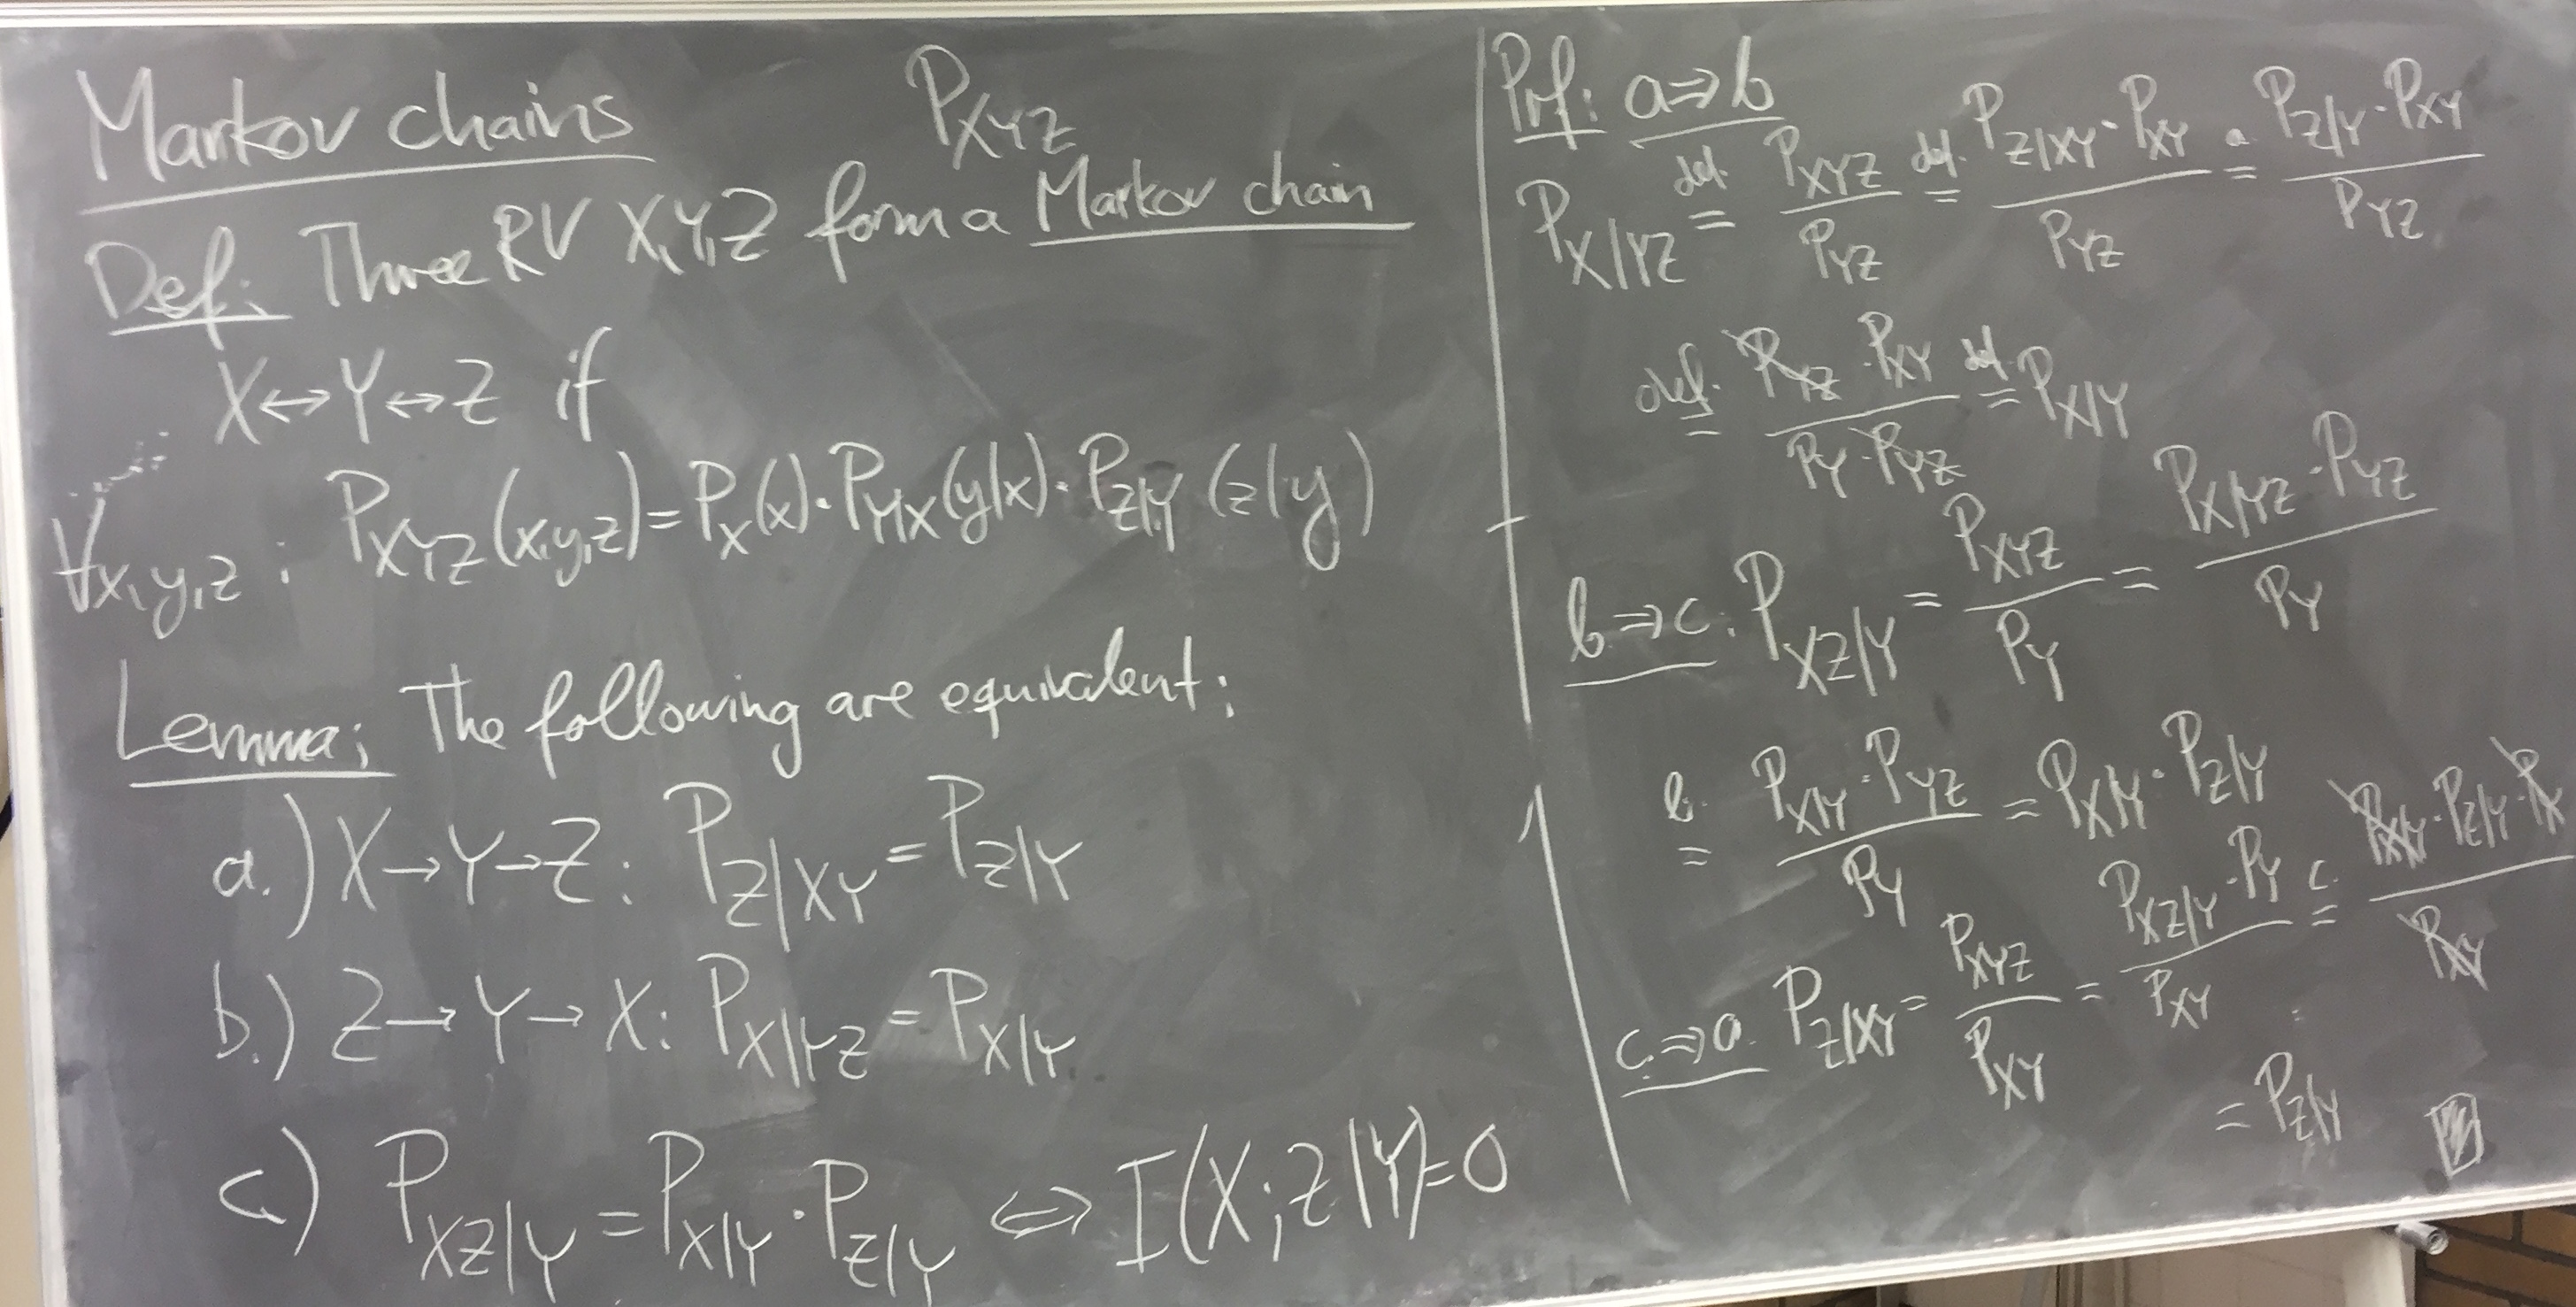 Markov chains P_XYZ
Def: Three RV X,Y,Z form a Markov chain
X↔Y↔Z if
∀x,y,z : P_XYZ(x,y,z) = P_X(x)·P_Y|X(y|x)·P_Z|Y(z|y)
Lemma: The following are equivalent:
a.) X→Y→Z: P_Z|XY = P_Z|Y
b.) Z→Y→X: P_X|YZ = P_X|Y
c.) P_XZ|Y = P_X|Y · P_Z|Y ⇔ I(X;Z|Y)=0
Prf: a⇒b
P_X|YZ =(def.) P_XYZ / P_YZ =(def.) P_Z|XY · P_XY / P_YZ =(a.) P_Z|Y · P_XY / P_YZ
=(def.) P_YZ · P_XY / P_Y · P_YZ =(def.) P_X|Y
b⇒c. P_XZ|Y = P_XYZ / P_Y = P_X|YZ · P_YZ / P_Y
=(b.) P_X|Y · P_YZ / P_Y = P_X|Y · P_Z|Y
c.⇒a. P_Z|XY = P_XYZ / P_XY = P_XZ|Y · P_Y / P_XY =(c.) P_X|Y · P_Z|Y · P_Y / P_XY
= P_Z|Y